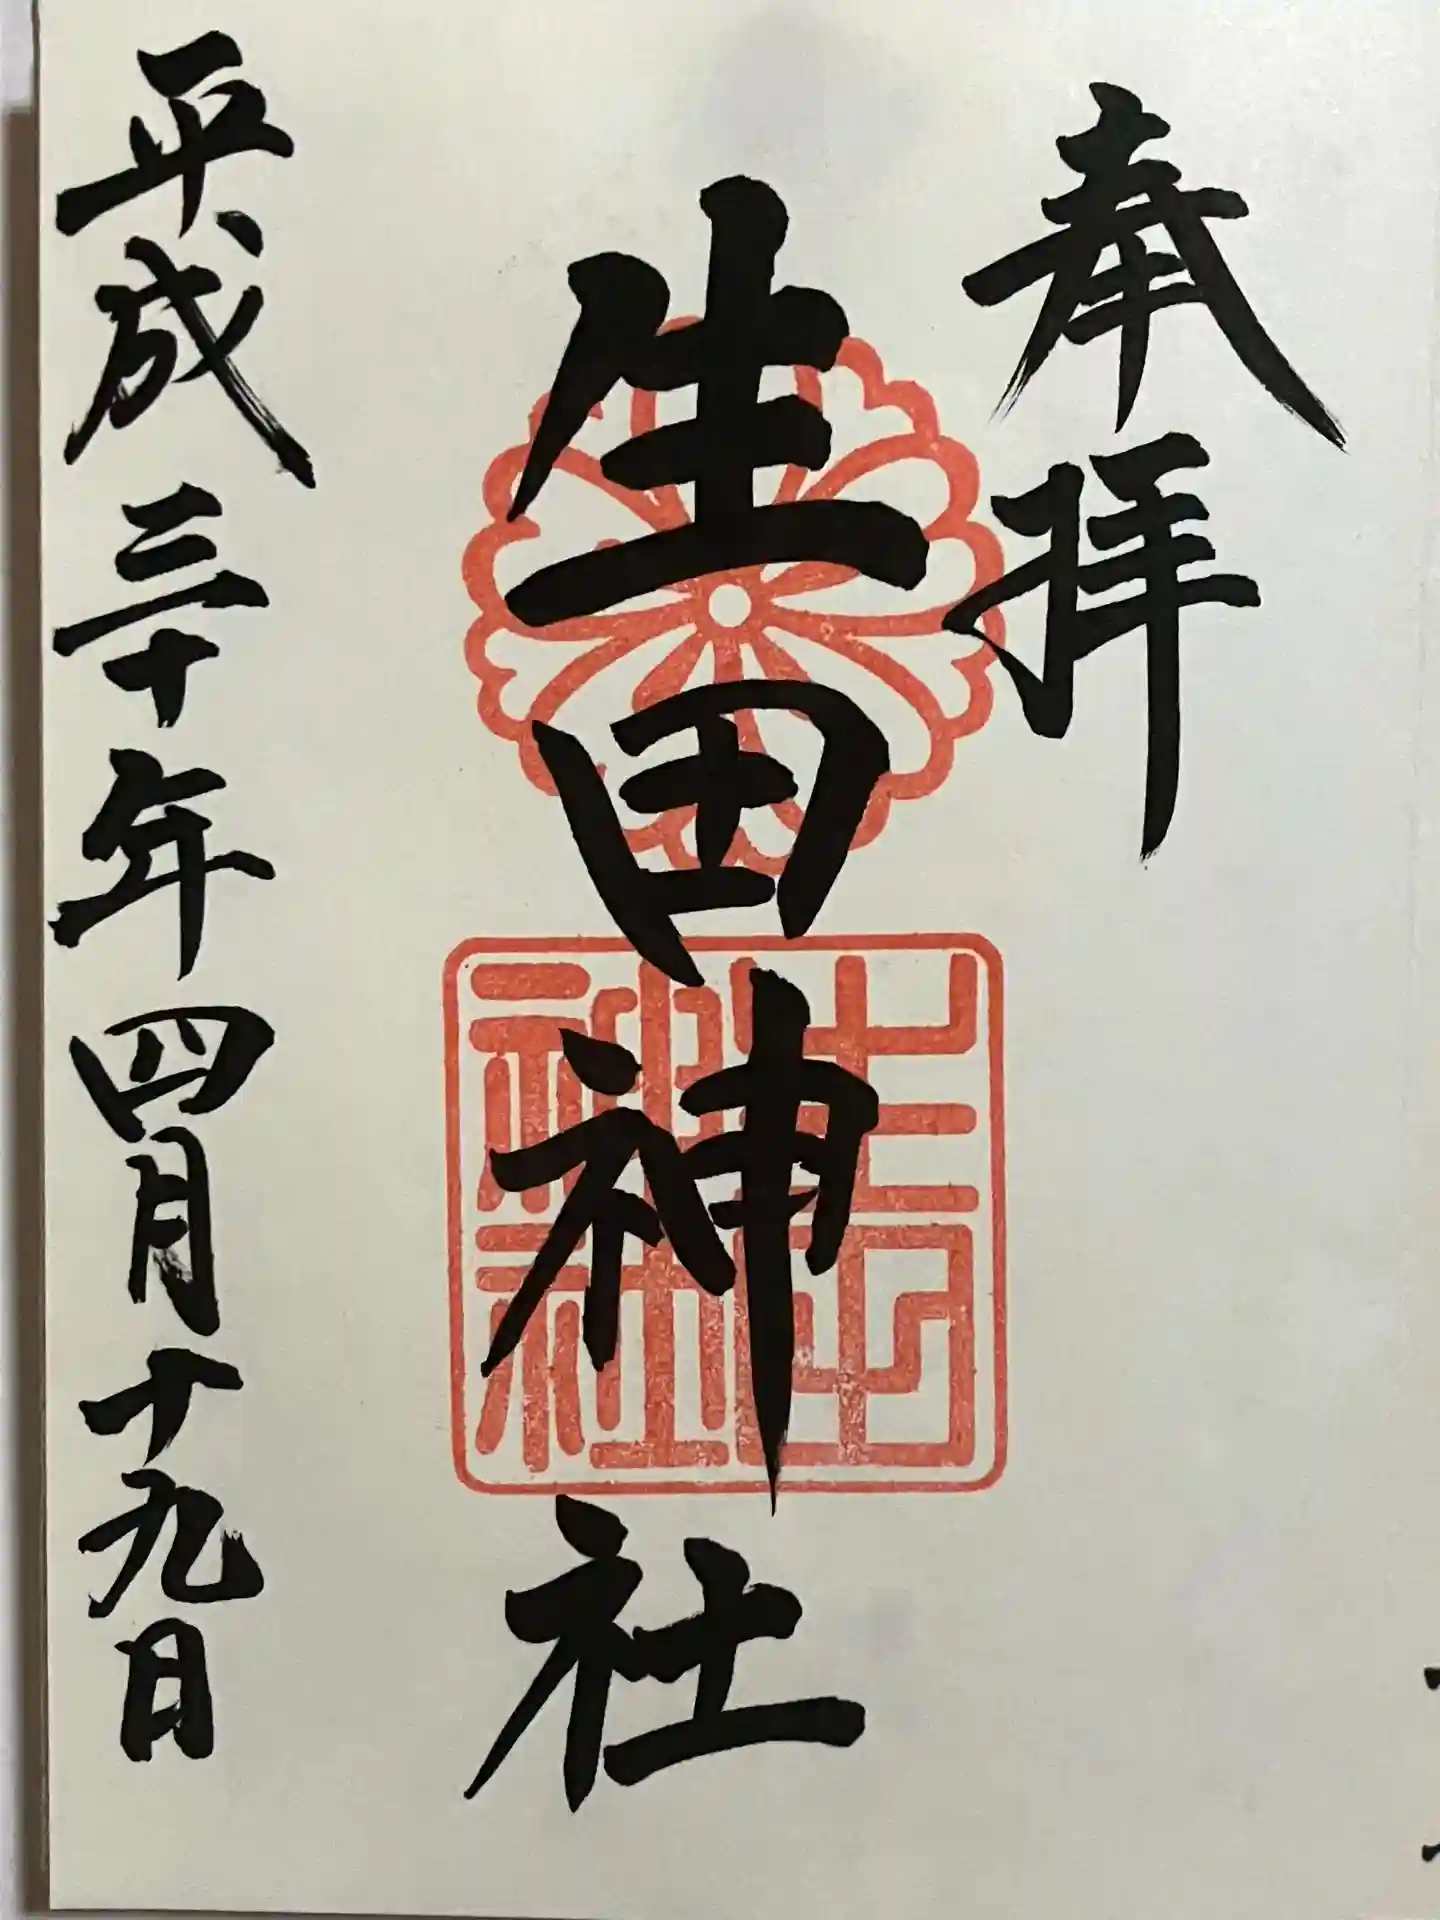 奉拝
生田神社
生田神社
平成三十年四月十九日